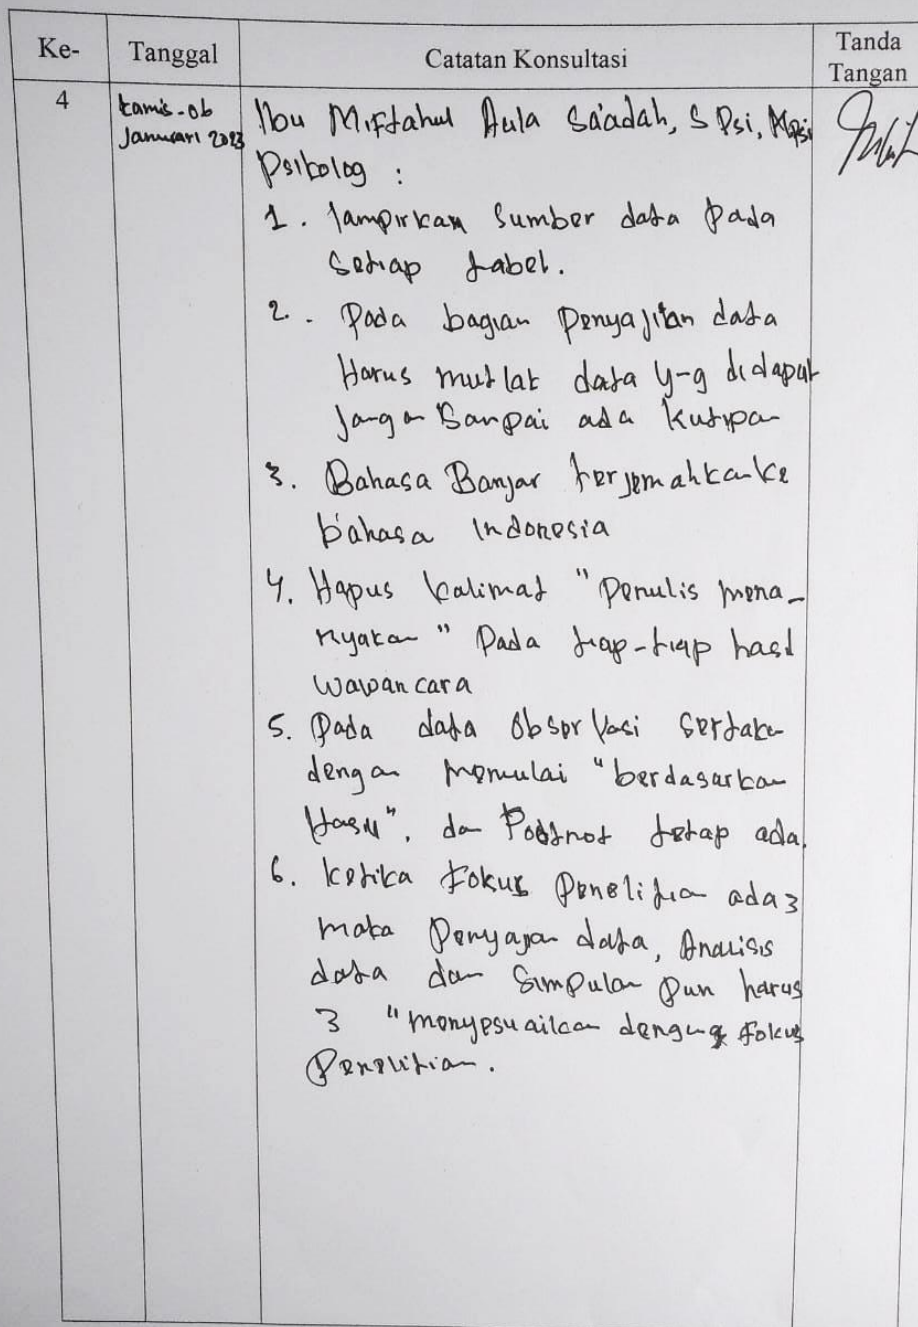 Ke-
Tanggal
Catatan Konsultasi
Tanda
Tangan
4
Kamis-06
Januari 2023
Ibu Miftahul Aula Sa'adah, S Psi, MPsi
Psikolog :
1. lampirkan Sumber data pada
Setiap tabel.
2. Pada bagian Penyajian data
Harus mutlak data y-g didapat
Jangan Sampai ada Kutipan
3. Bahasa Banjar terjemahkan ke
bahasa Indonesia
4. Hapus kalimat "Penulis mena-
nyakan" Pada tiap-tiap hasil
Wawancara
5. Pada data Observasi sertakan
dengan memulai "berdasarkan
Hasil", dan Footnot tetap ada.
6. ketika Fokus Penelitian ada 3
maka Penyajan data, Analisis
data dan Simpulan Pun harus
3 "menyesuaikan dengan fokus
Penelitian.